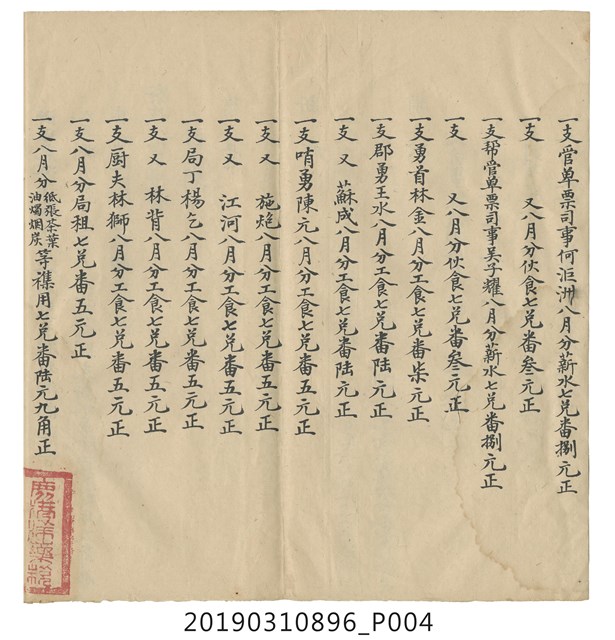 一支管單票司事何泟洲八月分薪水七兌番捌元正
一支 又八月分伙食七兌番叁元正
一支幫管單票司事吴子耀八月分薪水七兌番捌元正
一支 又八月分伙食七兌番叁元正
一支勇首林金八月分工食七兌番柒元正
一支郡勇王水八月分工食七兌番陸元正
一支 又 蘇成八月分工食七兌番陸元正
一支哨勇陳元八月分工食七兌番五元正
一支 又 施炮八月分工食七兌番五元正
一支 又 江河八月分工食七兌番五元正
一支局丁楊乞八月分工食七兌番五元正
一支 又 林背八月分工食七兌番五元正
一支厨夫林獅八月分工食七兌番五元正
一支八月分局租七兌番五元正
一支八月分紙張茶葉油燭烟炭等襍用七兌番陸元九角正
20190310896_P004